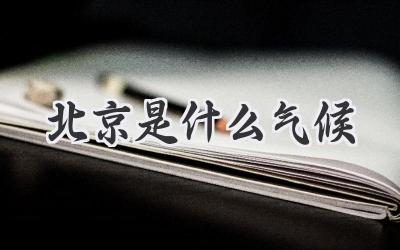 北京是什么气候